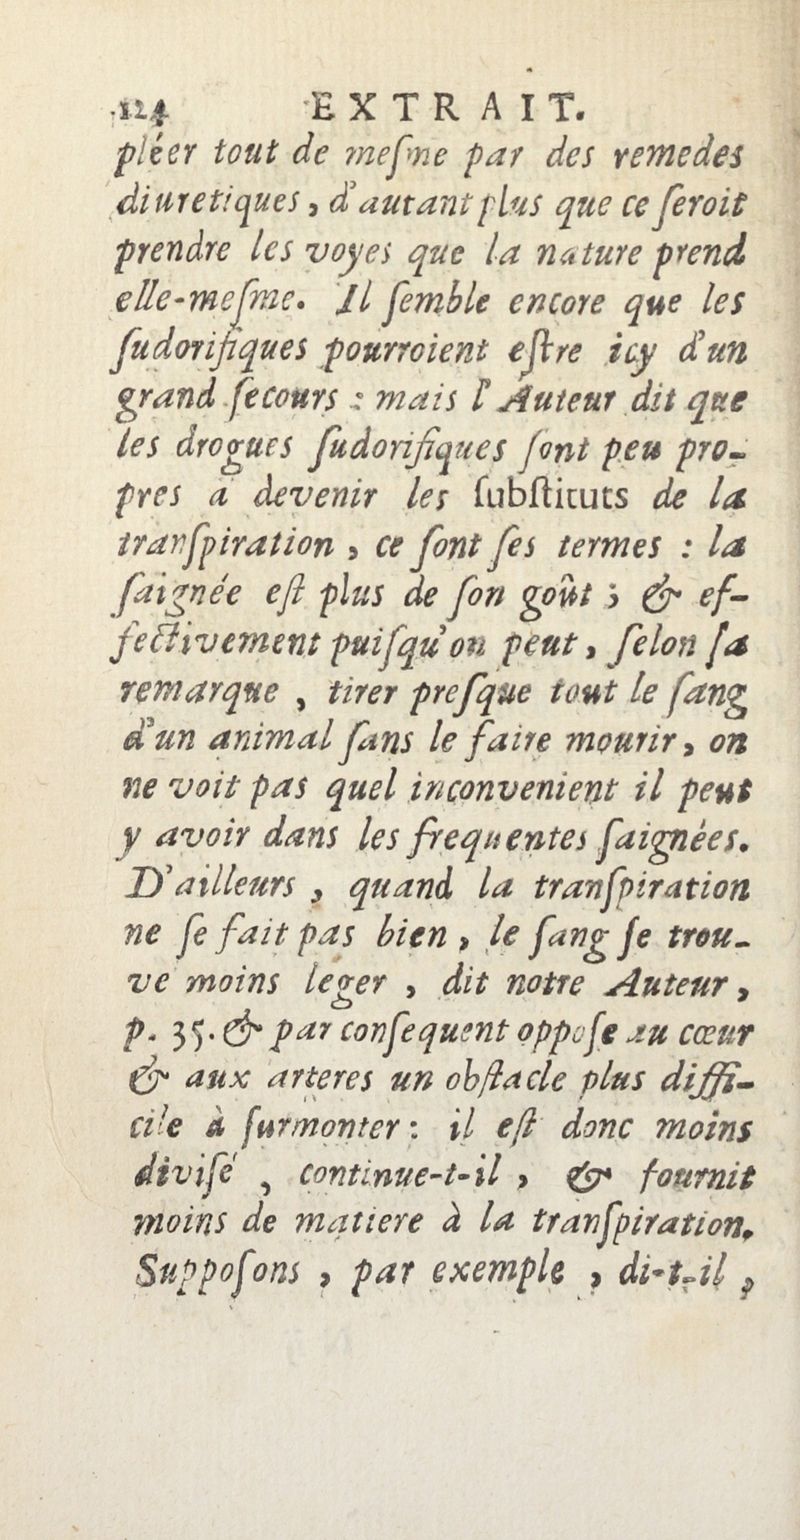 124 EXTRAIT.
pléer tout de meſme par des remedes
diuretiques, d'autant plus que ce ſeroit
prendre les voyes que la nature prend
elle-meſme. Il ſemble encore que les
ſudorifiques pourroient eſtre icy d'un
grand ſecours : mais l'Auteur dit que
les drogues ſudorifiques ſont peu pro-
pres à devenir les ſubſtituts de la
tranſpiration, ce ſont ſes termes : la
ſaignée eſt plus de ſon goût ; & ef-
fectivement puiſqu'on peut, ſelon ſa
remarque, tirer preſque tout le ſang
d'un animal ſans le faire mourir, on
ne voit pas quel inconvenient il peut
y avoir dans les frequentes ſaignées.
D'ailleurs, quand la tranſpiration
ne ſe fait pas bien, le ſang ſe trou-
ve moins leger, dit notre Auteur,
p. 35. & par conſequent oppoſe au cœur
& aux arteres un obſtacle plus diffi-
cile à ſurmonter : il eſt donc moins
diviſé, continue-t-il, & fournit
moins de matiere à la tranſpiration.
Suppoſons, par exemple, di-t-il,